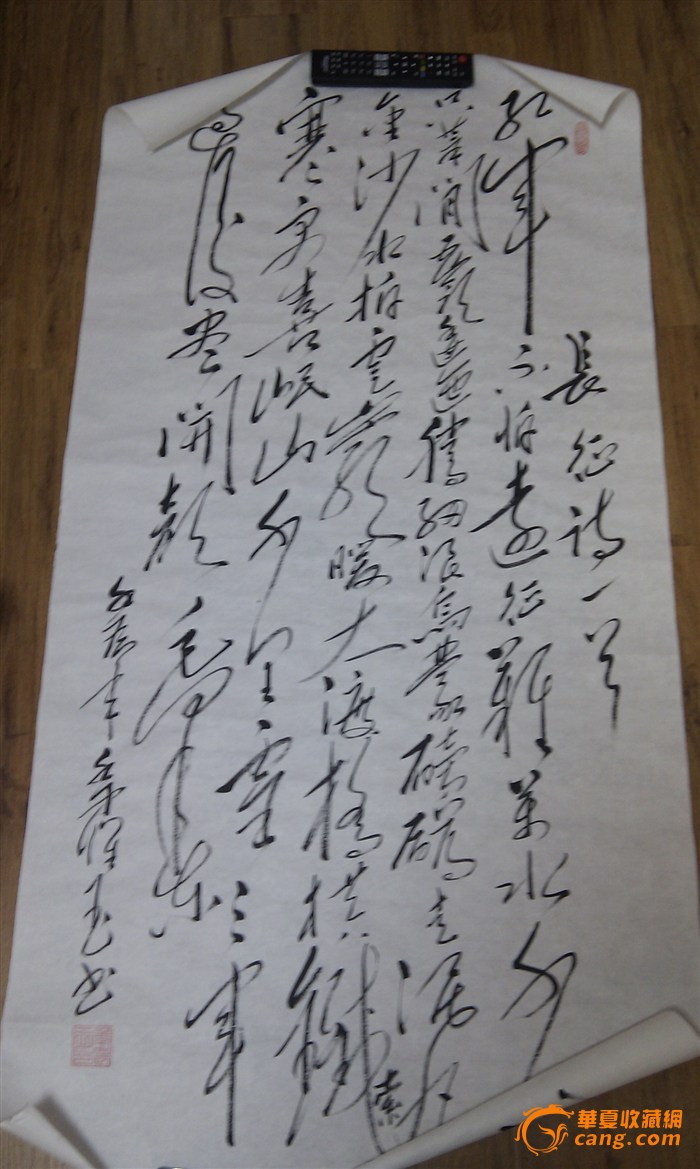 長征诗一首
红軍不怕遠征難萬水千
只等閒五嶺逶迤騰細浪烏蒙磅礴走泥丸
金沙水拍雲崖暖大渡橋横鐵索
寒更喜岷山千里雪三軍
過後盡開颜 毛泽东
年 玉书
華夏收藏網
cang.com